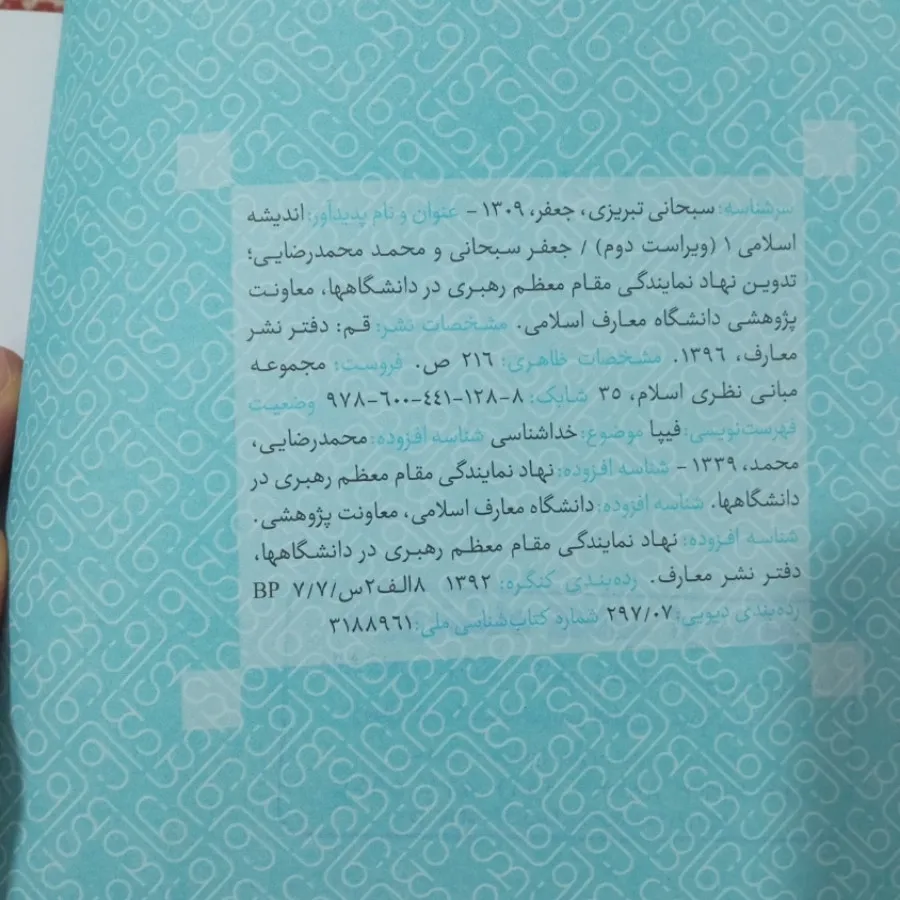 سرشناسه: سبحانی تبریزی، جعفر، ۱۳۰۹ - عنوان و نام پدیدآور: اندیشه
اسلامی ۱ (ویراست دوم) / جعفر سبحانی و محمد محمدرضایی؛
تدوین نهاد نمایندگی مقام معظم رهبری در دانشگاهها، معاونت
پژوهشی دانشگاه معارف اسلامی. مشخصات نشر: قم: دفتر نشر
معارف، ۱۳۹۶. مشخصات ظاهری: ۲۱۶ ص. فروست: مجموعه
مبانی نظری اسلام، ۳۵ شابک: ۸-۱۲۸-۴۴۱-۶۰۰-۹۷۸ وضعیت
فهرست‌نویسی: فیپا موضوع: خداشناسی شناسه افزوده: محمدرضایی،
محمد، ۱۳۳۹ - شناسه افزوده: نهاد نمایندگی مقام معظم رهبری در
دانشگاهها. شناسه افزوده: دانشگاه معارف اسلامی، معاونت پژوهشی.
شناسه افزوده: نهاد نمایندگی مقام معظم رهبری در دانشگاهها،
دفتر نشر معارف. رده‌بندی کنگره: ۱۳۹۲ ۸الف۲س/۷/۷ BP
رده‌بندی دیویی: ۲۹۷/۰۷ شمارد کتاب‌شناسی ملی: ۳۱۸۸۹۶۱